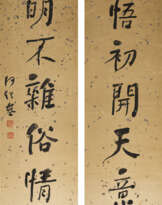 悟初開天意
明不雜俗情
何紹基